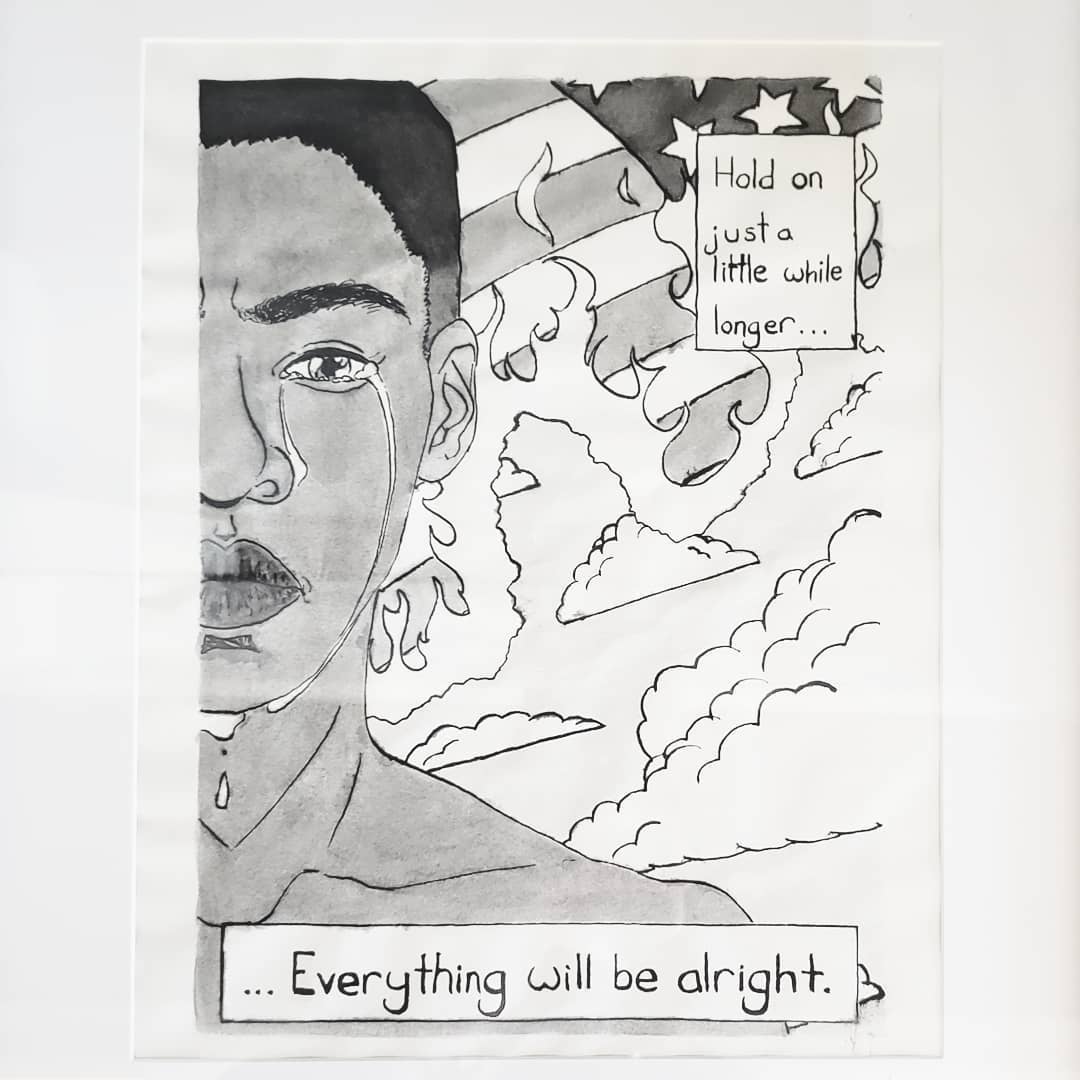 Hold on
just a
little while
longer...
... Everything will be alright.